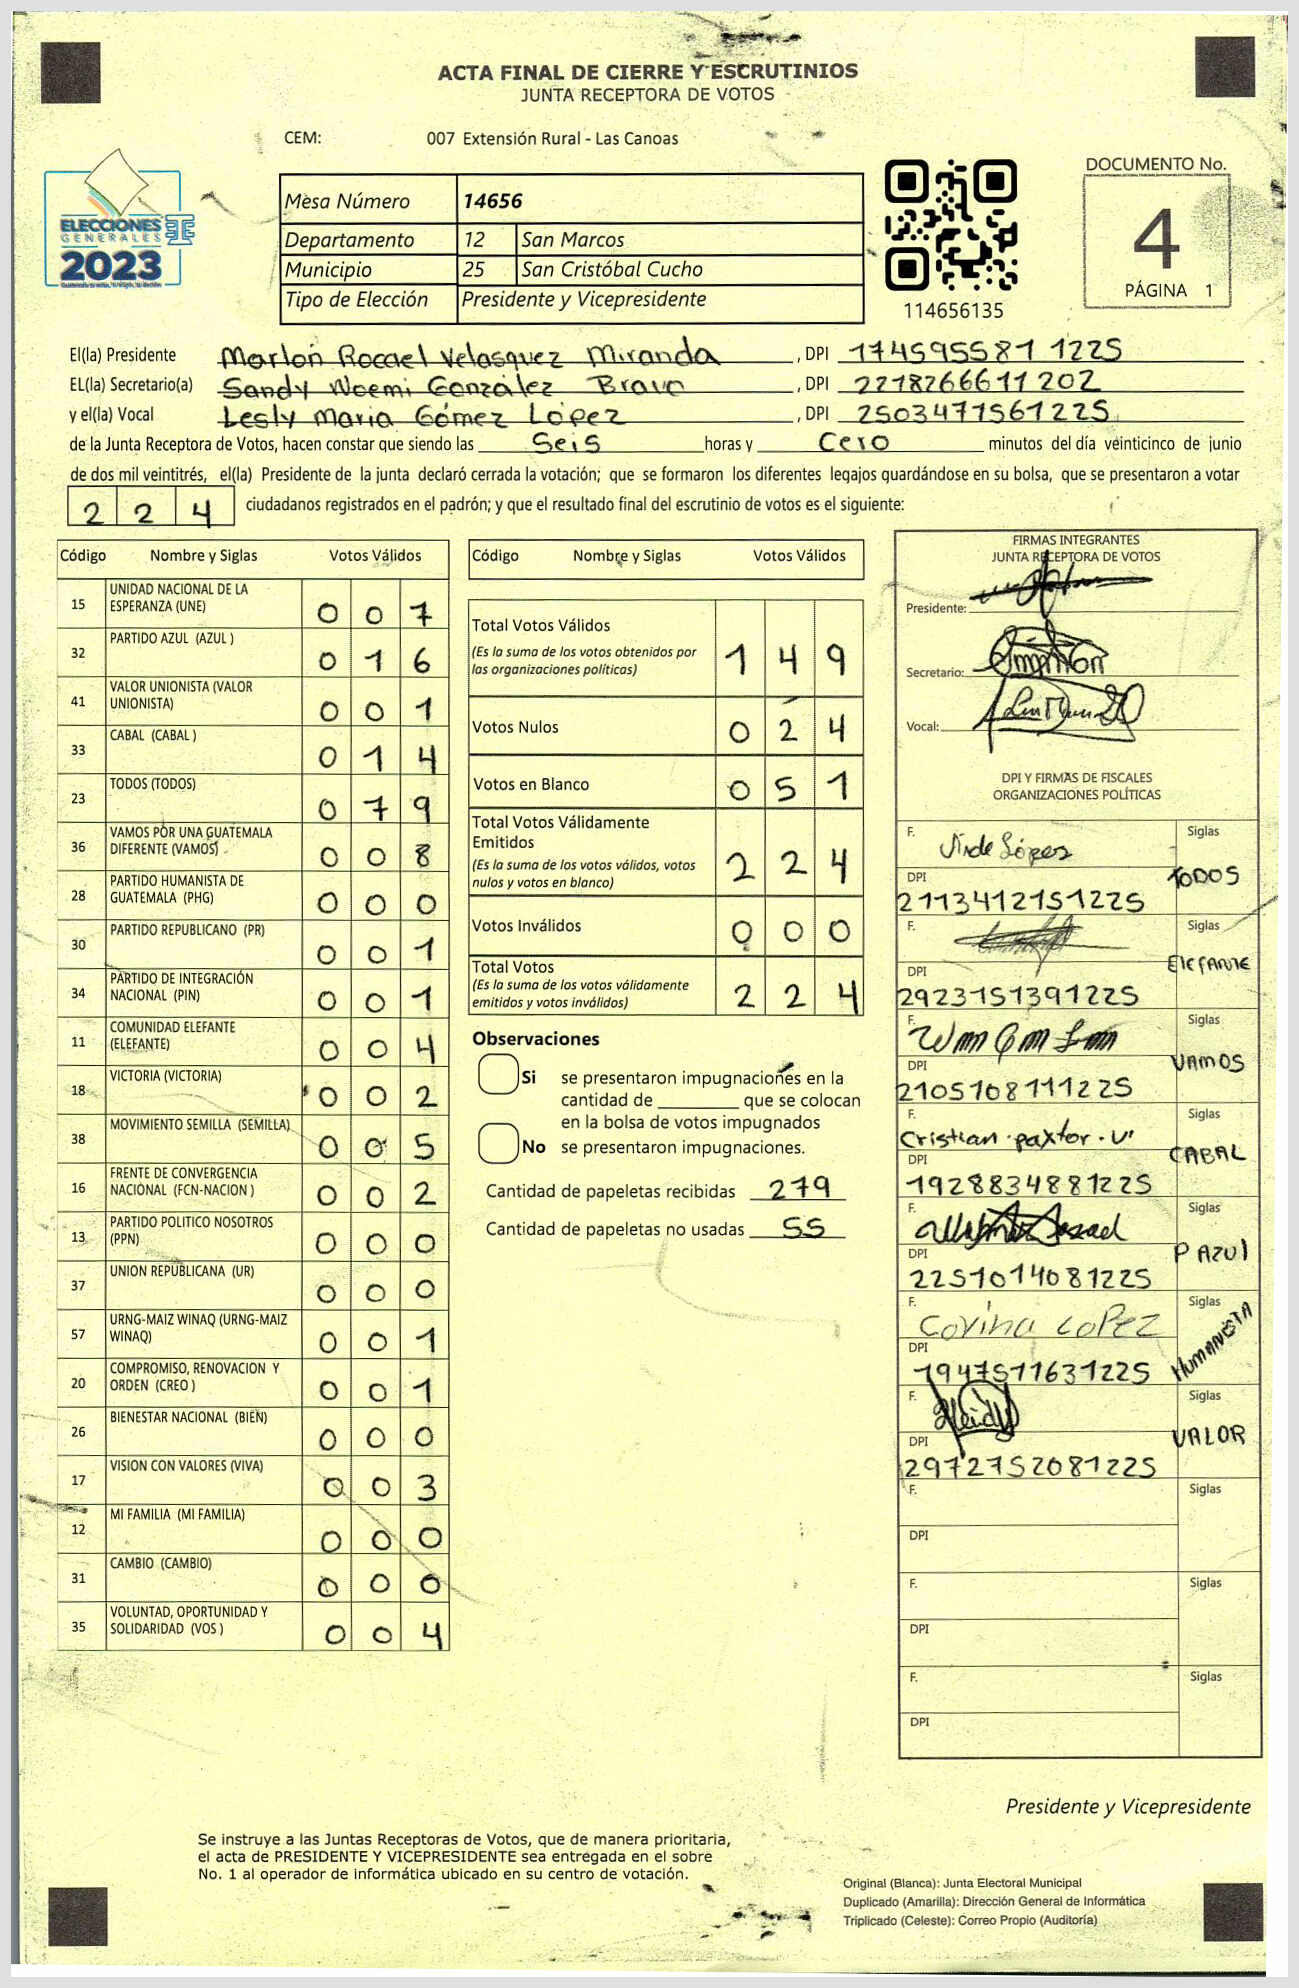 ACTA FINAL DE CIERRE Y ESCRUTINIOS
JUNTA RECEPTORA DE VOTOS
CEM: 007 Extensión Rural - Las Canoas
ELECCIONES
GENERALES
2023
Mesa Número 14656
Departamento 12 San Marcos
Municipio 25 San Cristóbal Cucho
Tipo de Elección Presidente y Vicepresidente
114656135
DOCUMENTO No.
4
PÁGINA 1
El(la) Presidente Marlon Rocael Velasquez Miranda, DPI 174595581 1225
EL(la) Secretario(a) Sandy Noemi González Bravo, DPI 2218266611202
y el(la) Vocal Lesly Maria Gómez López, DPI 2503471561225
de la Junta Receptora de Votos, hacen constar que siendo las Seis horas y Cero minutos del día veinticinco de junio
de dos mil veintitrés, el(la) Presidente de la junta declaró cerrada la votación; que se formaron los diferentes legajos guardándose en su bolsa, que se presentaron a votar
224 ciudadanos registrados en el padrón; y que el resultado final del escrutinio de votos es el siguiente:
Código Nombre y Siglas Votos Válidos
15 UNIDAD NACIONAL DE LA
ESPERANZA (UNE) 0 0 7
32 PARTIDO AZUL (AZUL ) 0 1 6
41 VALOR UNIONISTA (VALOR
UNIONISTA) 0 0 1
33 CABAL (CABAL ) 0 1 4
23 TODOS (TODOS) 0 7 9
36 VAMOS POR UNA GUATEMALA
DIFERENTE (VAMOS) 0 0 8
28 PARTIDO HUMANISTA DE
GUATEMALA (PHG) 0 0 0
30 PARTIDO REPUBLICANO (PR) 0 0 1
34 PARTIDO DE INTEGRACIÓN
NACIONAL (PIN) 0 0 1
11 COMUNIDAD ELEFANTE
(ELEFANTE) 0 0 4
18 VICTORIA (VICTORIA) 0 0 2
38 MOVIMIENTO SEMILLA (SEMILLA) 0 0 5
16 FRENTE DE CONVERGENCIA
NACIONAL (FCN-NACION ) 0 0 2
13 PARTIDO POLITICO NOSOTROS
(PPN) 0 0 0
37 UNION REPUBLICANA (UR) 0 0 0
57 URNG-MAIZ WINAQ (URNG-MAIZ
WINAQ) 0 0 1
20 COMPROMISO, RENOVACION Y
ORDEN (CREO ) 0 0 1
26 BIENESTAR NACIONAL (BIEN) 0 0 0
17 VISION CON VALORES (VIVA) 0 0 3
12 MI FAMILIA (MI FAMILIA) 0 0 0
31 CAMBIO (CAMBIO) 0 0 0
35 VOLUNTAD, OPORTUNIDAD Y
SOLIDARIDAD (VOS ) 0 0 4
Código Nombre y Siglas Votos Válidos
Total Votos Válidos 1 4 9
(Es la suma de los votos obtenidos por
las organizaciones políticas)
Votos Nulos 0 2 4
Votos en Blanco 0 5 1
Total Votos Válidamente
Emitidos 2 2 4
(Es la suma de los votos válidos, votos
nulos y votos en blanco)
Votos Inválidos 0 0 0
Total Votos 2 2 4
(Es la suma de los votos válidamente
emitidos y votos inválidos)
Observaciones
Si se presentaron impugnaciones en la
cantidad de ________ que se colocan
en la bolsa de votos impugnados
No se presentaron impugnaciones.
Cantidad de papeletas recibidas 279
Cantidad de papeletas no usadas 55
FIRMAS INTEGRANTES
JUNTA RECEPTORA DE VOTOS
Presidente:
Secretario:
Vocal:
DPI Y FIRMAS DE FISCALES
ORGANIZACIONES POLÍTICAS
F. López Siglas
DPI TODOS
2113412151225
F. Siglas
DPI ElEFANTE
2923151391225
F. Siglas
DPI VAMOS
2105108111225
F. Cristian paxtor Siglas
DPI CABAL
1928834881225
F. Siglas
DPI P AZUl
2251014081225
F. Corina LoPez Siglas
DPI HUMANISTA
1947511631225
F. Heidy Siglas
DPI VALOR
2972752081225
F. Siglas
DPI
F. Siglas
DPI
F. Siglas
DPI
Presidente y Vicepresidente
Se instruye a las Juntas Receptoras de Votos, que de manera prioritaria,
el acta de PRESIDENTE Y VICEPRESIDENTE sea entregada en el sobre
No. 1 al operador de informática ubicado en su centro de votación.
Original (Blanca): Junta Electoral Municipal
Duplicado (Amarilla): Dirección General de Informática
Triplicado (Celeste): Correo Propio (Auditoría)